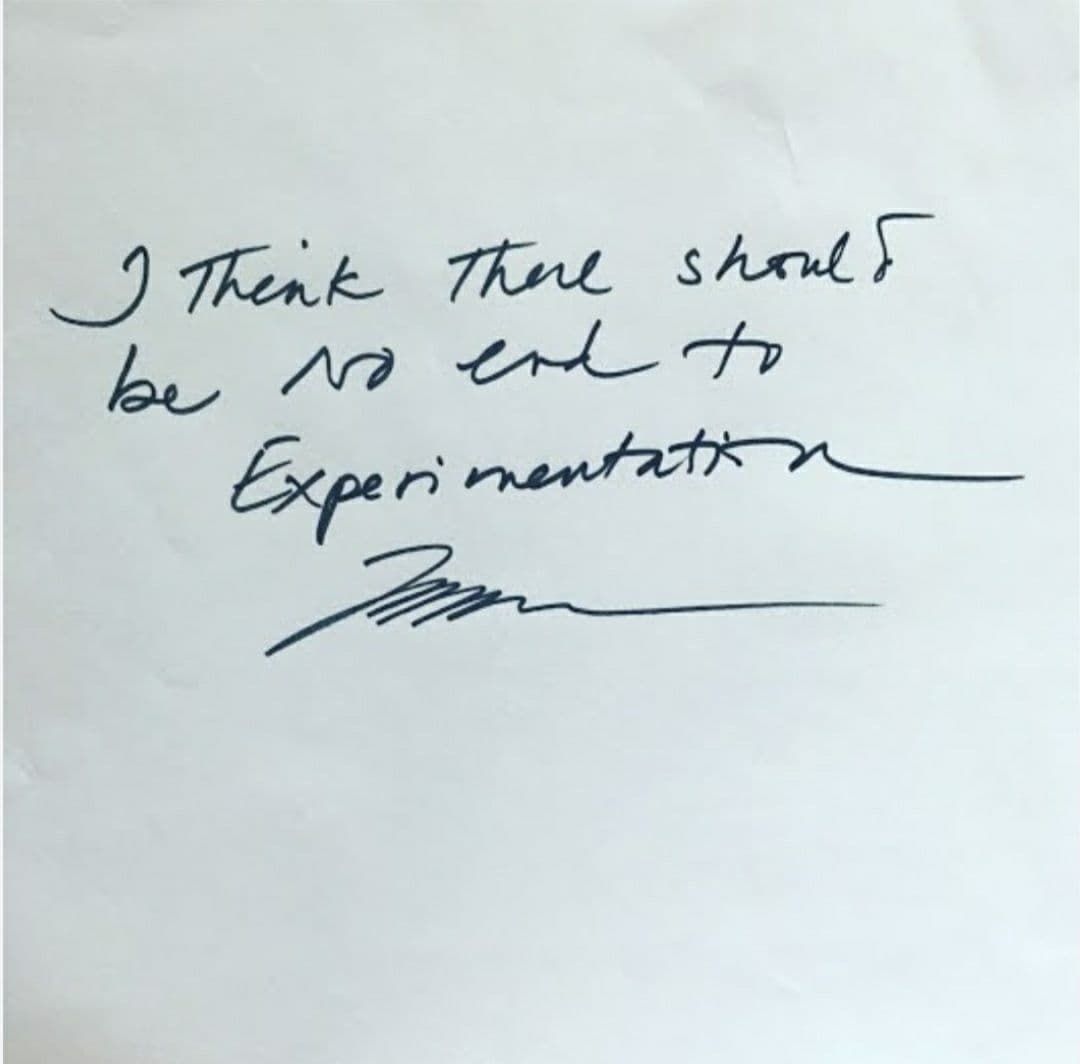 I Think There should
be No end to
Experimentation